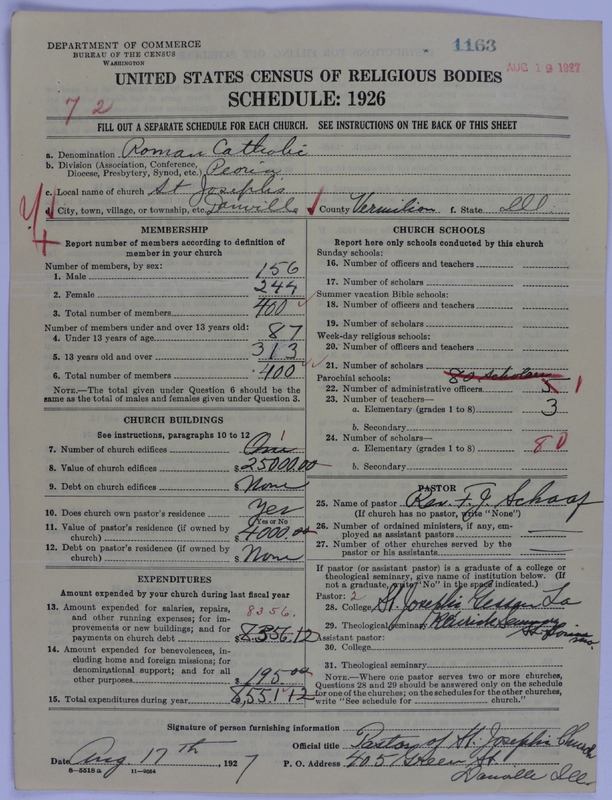 DEPARTMENT OF COMMERCE
BUREAU OF THE CENSUS
WASHINGTON
1163
AUG 19 1927
UNITED STATES CENSUS OF RELIGIOUS BODIES
SCHEDULE: 1926
7 2
FILL OUT A SEPARATE SCHEDULE FOR EACH CHURCH. SEE INSTRUCTIONS ON THE BACK OF THIS SHEET
a. Denomination Roman Catholic
b. Division (Association, Conference, Diocese, Presbytery, Synod, etc.) Peoria
c. Local name of church St Joseph's
d. City, town, village, or township, etc. Danville County Vermilion f. State Ill.
MEMBERSHIP
Report number of members according to definition of member in your church
Number of members, by sex:
1. Male 156
2. Female 244
3. Total number of members 400
Number of members under and over 13 years old:
4. Under 13 years of age 87
5. 13 years old and over 313
6. Total number of members 400
NOTE.—The total given under Question 6 should be the same as the total of males and females given under Question 3.
CHURCH BUILDINGS
See instructions, paragraphs 10 to 12
7. Number of church edifices One 1
8. Value of church edifices $25000.00
9. Debt on church edifices $ None
10. Does church own pastor's residence Yes
Yes or No
11. Value of pastor's residence (if owned by church) $4000.00
12. Debt on pastor's residence (if owned by church) $ None
EXPENDITURES
Amount expended by your church during last fiscal year
13. Amount expended for salaries, repairs, and other running expenses; for improvements or new buildings; and for payments on church debt $8356.12
8356.
14. Amount expended for benevolences, including home and foreign missions; for denominational support; and for all other purposes $195.00
15. Total expenditures during year $8,551.12
CHURCH SCHOOLS
Report here only schools conducted by this church
Sunday schools:
16. Number of officers and teachers
17. Number of scholars
Summer vacation Bible schools:
18. Number of officers and teachers
19. Number of scholars
Week-day religious schools:
20. Number of officers and teachers
21. Number of scholars
80 scholars
Parochial schools:
22. Number of administrative officers 1
23. Number of teachers—
a. Elementary (grades 1 to 8) 3
b. Secondary
24. Number of scholars—
a. Elementary (grades 1 to 8) 80
b. Secondary
PASTOR
25. Name of pastor Rev. F. J. Schaaf
(If church has no pastor, write "None")
26. Number of ordained ministers, if any, employed as assistant pastors
27. Number of other churches served by the pastor or his assistants
If pastor (or assistant pastor) is a graduate of a college or theological seminary, give name of institution below. (If not a graduate, write "No" in the space indicated.)
Pastor: 2
28. College St. Joseph's
29. Theological seminary Kenrick Seminary St Louis Mo.
Assistant pastor:
30. College
31. Theological seminary
NOTE.—Where one pastor serves two or more churches, Questions 28 and 29 should be answered only on the schedule for one of the churches; on the schedules for the other churches, write "See schedule for church."
Signature of person furnishing information
Official title Pastor of St. Joseph's Church
Date Aug. 17th, 1927 P. O. Address 405 Green St.
Danville Ill.
8—5518 a 11—9064